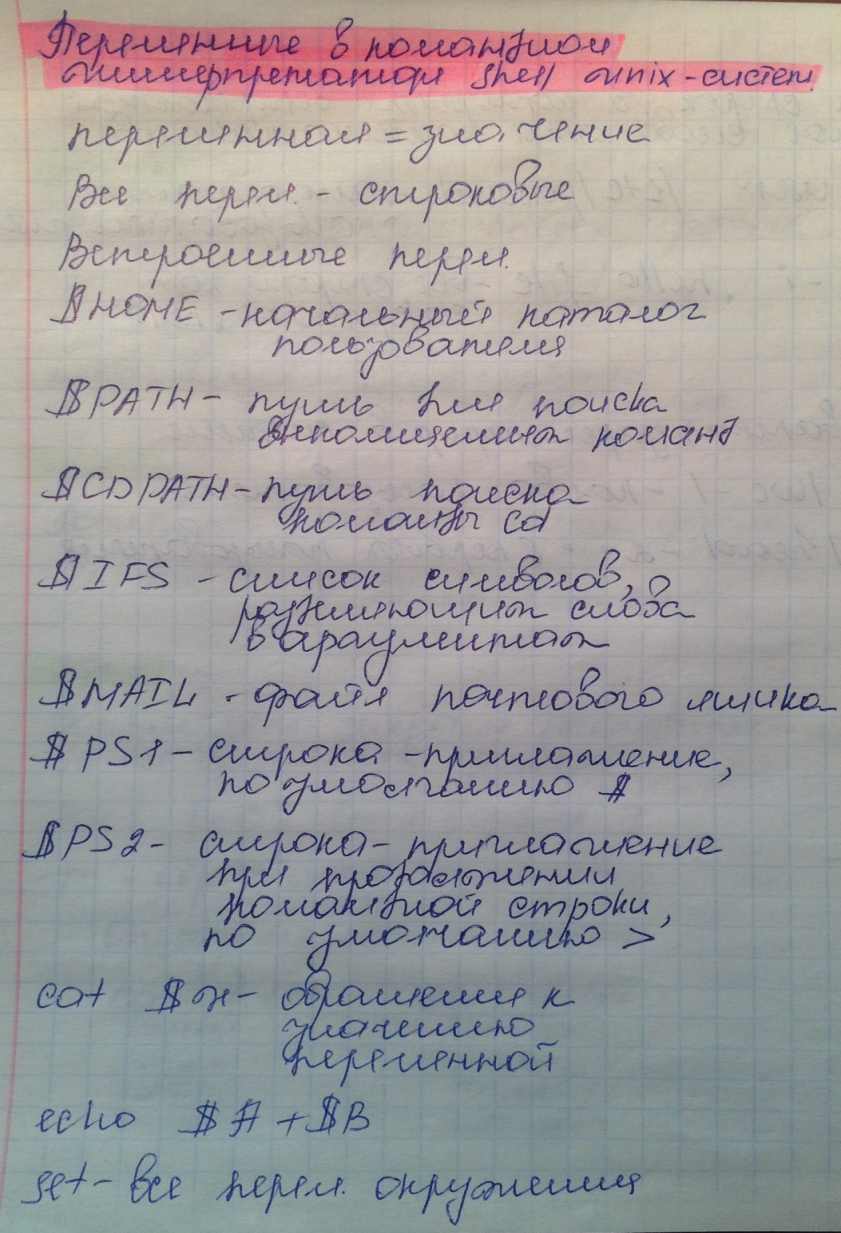 Переменные в командном
интерпретаторе shell unix-систем.
переменная = значение
Все перем. - строковые
Встроенные перем.
$HOME - начальный каталог
пользователя
$PATH - путь для поиска
выполняемых команд
$CDPATH - путь поиска
команды cd
$IFS - список символов,
разделяющих слова
в аргументах
$MAIL - файл почтового ящика
$PS1 - строка - приглашение,
по умолчанию $
$PS2 - строка - приглашение
при продолжении
командной строки,
по умолчанию >
cat $x - обращения к
значению
переменной
echo $A + $B
set - все перем. окружения